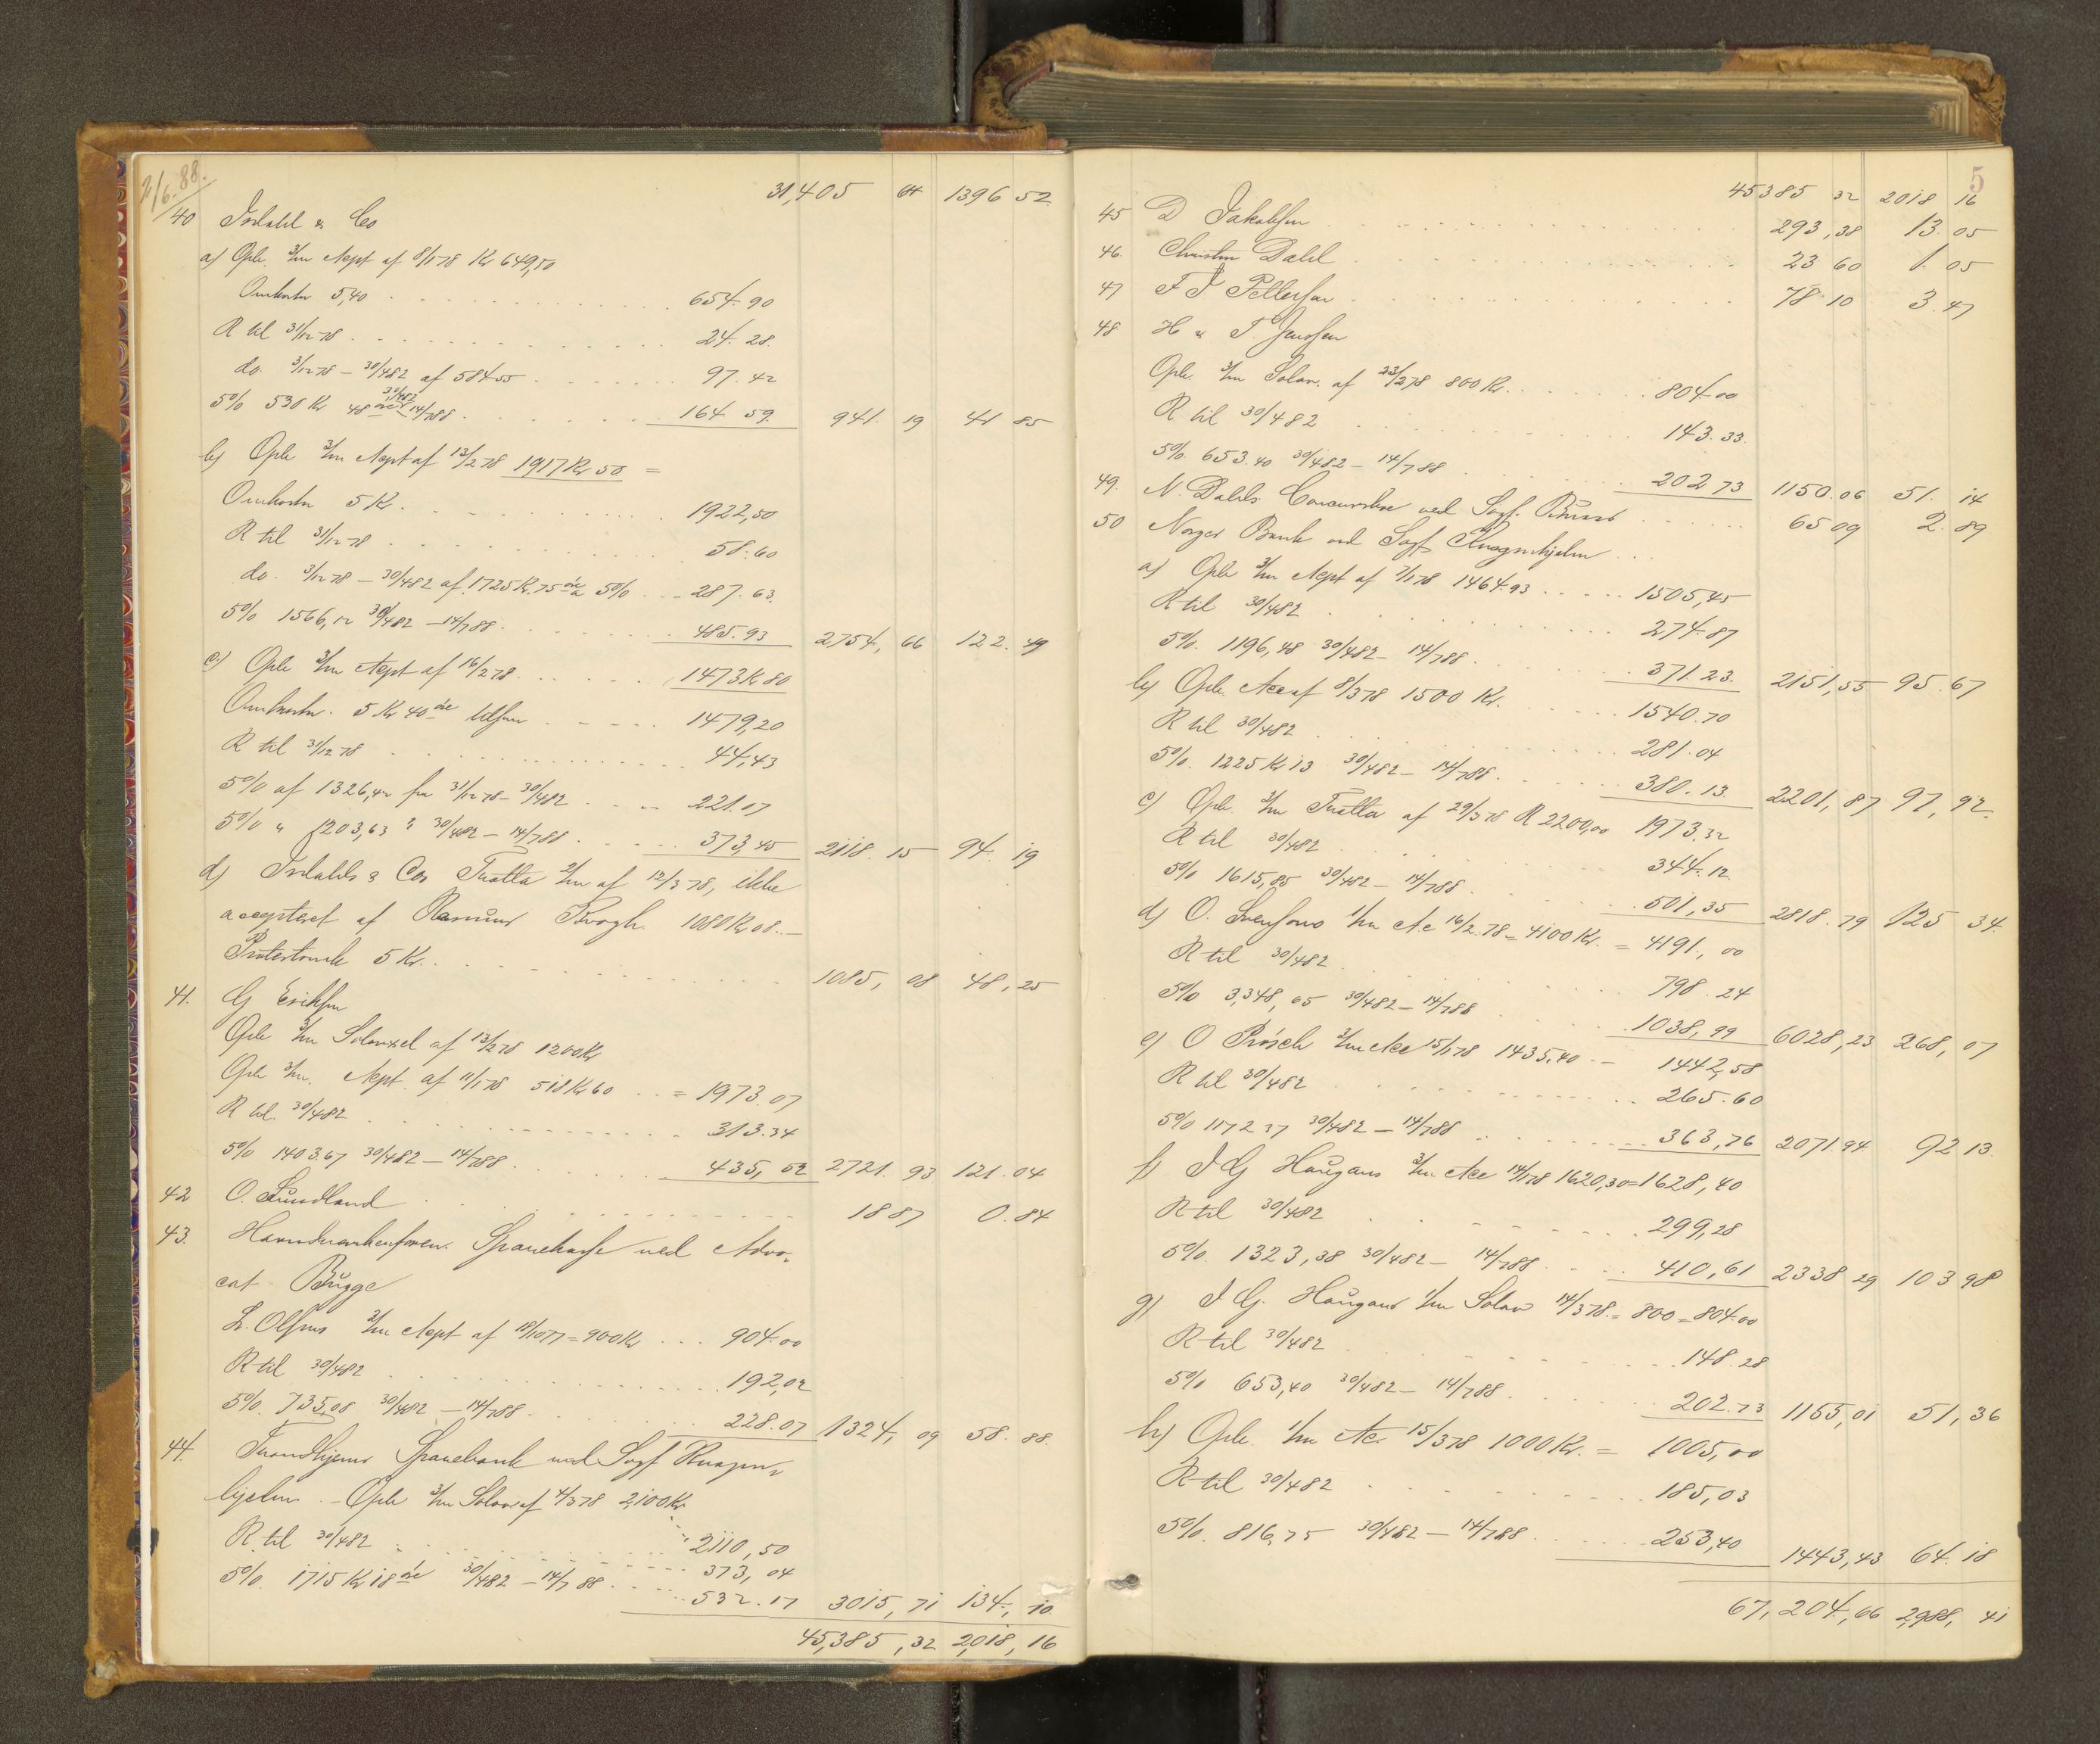 2/6.88.
31,405 64 1396 52
40 Isdahl & Co
a) Opr 3/m Acpt af 8/1 78 Kr 649,50
Omkostn 5,40 654.90
R til 31/12 78 24.28.
do. 31/12 78 – 30/4 82 af 584 55 97.42
5% 530 Kr 48 øre 30/4 82 14/7 88 164 59. 941. 19 41 85
b) Opr 3/m Acpt af 13/2 78 1917 Kr 50 =
Omkostn 5 K. 1922,50
R til 31/12 78 58.60
do. 31/12 78 – 30/4 82 af 1725 K. 75 øre a 5% 287.63.
5% 1566,12 30/4 82 – 14/7 88. 485.93 2754, 66 122. 49
c) Opr 3/m Acpt af 16/2 78. 1473 K 80
Omkostn. 5 Kr 40 øre tilsm 1479,20
R til 31/12 78 44,43
5% af 1326,42 fra 31/12 78 – 30/4 82 221.07
5% " 1203,63 " 30/4 82 – 14/7 88 373,45 2118. 15 94. 19
d) Isdahls & Cos Tratta 3/m af 12/3 78, ikke
accepteret af Rasmus Brogh. 1080 Kr 08. –
Protestomk 5 Kr. 1085, 08 48, 25
41. G Eriksen
Opr 3/m Solavexel af 13/2 78 1200 Kr
Opr 3/m. Acpt. af 11/1 78 518 Kr 60 = 1973.07
R til. 30/4 82 313.34
5% 1403.67 30/4 82 – 14/7 88 435, 52 2721. 93 121. 04
42 O. Sundland 18 87 0. 84
43. Haandværkerforen. Sparekasse ved Advo-
cat Bugge
L. Olsens 3/m Acpt af 18/10 77 = 900 Kr 904.00
R til 30/4 82 192,02
5%. 735,08 30/4 82 – 14/7 88 228.07 1324, 09 58. 88.
44. Trondhjems Sparebank ved Sagf Knagen-
hjelm. – Opr 3/m Solav. af 4/3 78 2,100 Kr.
R. til 30/4 82 2110,50
373, 04
5%. 1715 Kr 18 øre 30/4 82 – 14/7 88 532.17 3015, 71 134, 10.
45,385, 32 2,018, 16
5
45385 32 2018 16
45 D Jakobsen 293,38 13. 05
46. Christen Dahl 23 60 1. 05
47 F J Pettersen 78.10 3. 47
48 H & T Jenssen
Opr. 3/m Solav. af 23/2 78 800 Kr. 804.00
R til 30/4 82 143.33.
5%. 653.40 30/4 82 – 14/7 88 202 73 1150.06 51. 14
49. N. Dahls Concursbo ved Sagf. 65 09 2. 89
50 Norges Bank ved Sagf. Knagenhjelm
a) Opr 3/m Acpt af 7/1 78 1464.93 1505,45
R til 30/4 82 274.87
5%. 1196,48 30/4 82 – 14/7 88 371.23. 2151,55 95. 67
b) Opr. Acc af 8/3 78 1500 Kr. 1540.70
R til 30/4 82 281.04
5%. 1225 Kr 13 30/4 82 – 14/7 88. 380.13. 2201, 87 97, 92.
c) Opr. 3/m Tratta af 29/3 78 R 2200,00 1973.32
R til 30/4 82 344.12.
5% 1615,85 30/4 82 – 14/7 88. 501,35 2818. 79 125 34.
d) O. Svensons 1/m Ac 16/2.78 = 4100 Kr. = 4191,00
R til 30/4 82 798.24
5% 3,348,65 30/4 82 – 14/7 88 1038,99 6028,23 268, 07
e) O Prösch 3/m Acc 15/1 78 1435.40 – 1442,58
R til 30/4 82 265.60
5% 1172 37 30/4 82 – 14/7 88 363,76 2071.94 92 13.
f) J G Haugans 3/m Acc 14/1 78 1620,30 = 1628,40
R til 30/4 82 299,28
5%. 1323,38 30/4 82 – 14/7 88 410,61 2338 29 103 98
g) J G. Haugans 1/m Solav 14/3 78. = 800 = 804.00
R til 30/4 82 148.28
5% 653,40 30/4 82 – 14/7 88. 202.73 1155,01 51, 36
h) Opr. 1/m Ac. 15/3 78 1000 Kr. = 1005,00
R til 30/4 82 185,03
5%. 816,75 30/4 82 – 14/7 88 253,40 1443,43 64. 18
67,204,66 2,988, 41